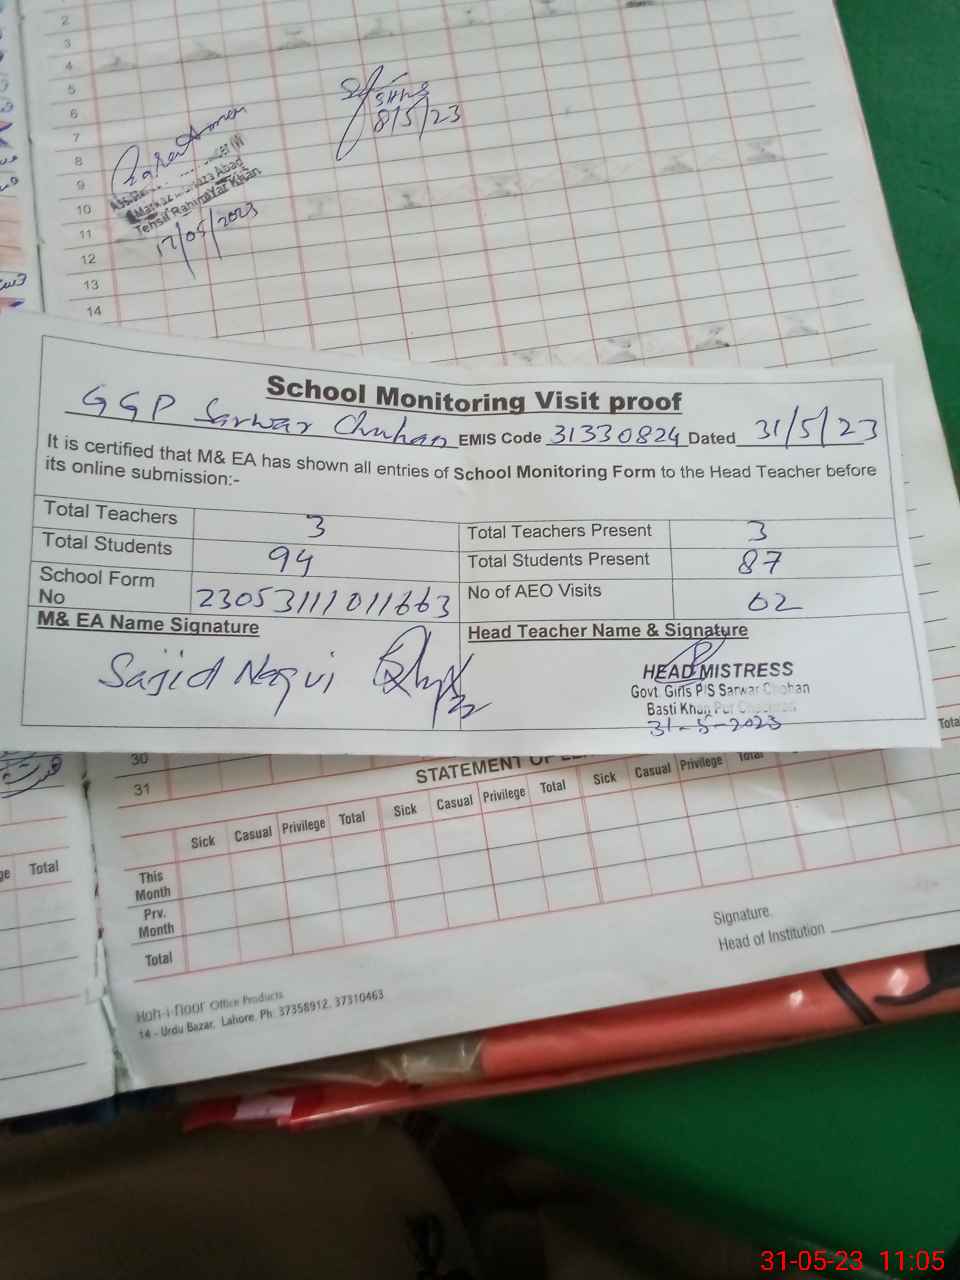 2
3
4
5
6
7
8
9
10
11
12
13
14
SHNS
8/5/23
Tehsil RahimYar Khan
17/05/2023
School Monitoring Visit proof
GGP Sarwar Chuhan EMIS Code 31330824 Dated 31/5/23
It is certified that M& EA has shown all entries of School Monitoring Form to the Head Teacher before
its online submission:-
Total Teachers 3 Total Teachers Present 3
Total Students 94 Total Students Present 87
School Form
No 23053111011663 No of AEO Visits 02
M& EA Name Signature Head Teacher Name & Signature
Sajid Naqvi
HEAD MISTRESS
Govt. Girls P/S Sarwar Chohan
Basti Khan Pur
31-5-2023
30
31
STATEMENT OF
Sick Casual Privilege Total Sick Casual Privilege Total Sick Casual Privilege Total
This
Month
Prv.
Month
Total
Total
Signature
Head of Institution
Koh-i-noor Office Products
14 - Urdu Bazar, Lahore. Ph: 37358912, 37310463
31-05-23 11:05